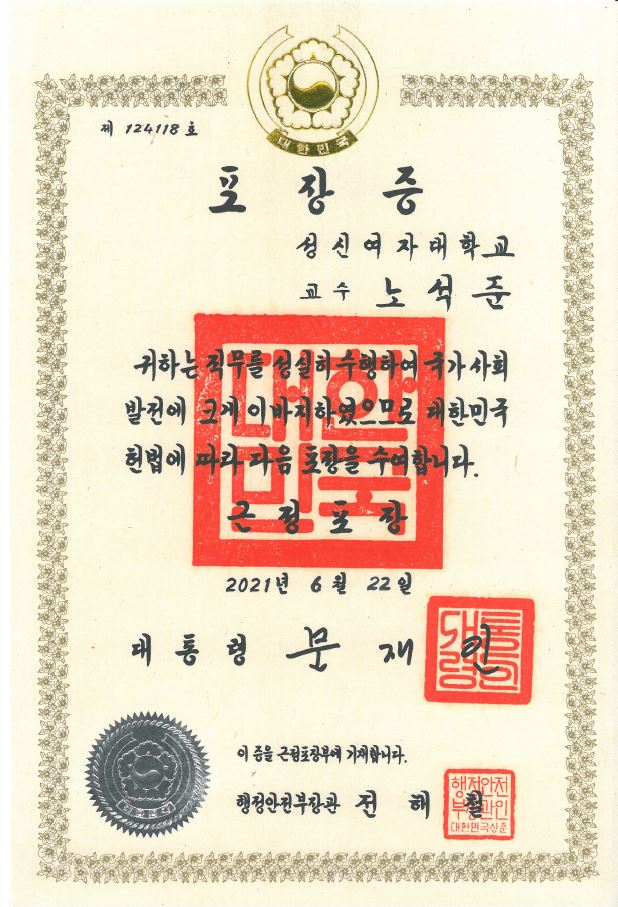 대한민국
제 124118 호
포장증
성신여자대학교
교수 노석준
귀하는 직무를 성실히 수행하여 국가 사회
발전에 크게 이바지하였으므로 대한민국
헌법에 따라 다음 포장을 수여합니다.
대한
민국
근정포장
2021년 6월 22일
대통령 문재인
이 증을 근정포장부에 기재합니다.
행정안전부장관 전해철
행정안전
부장관인
대한민국상훈